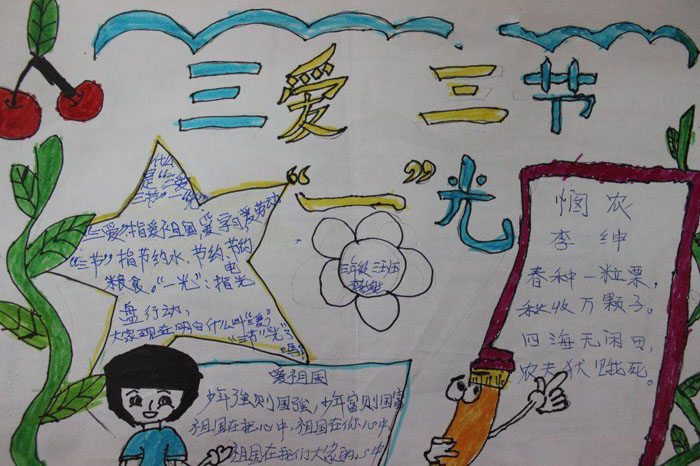 三爱 三节
“一”光
什么
是“三爱
三节”一光”
“三爱”指爱祖国,爱学习,爱劳动
“三节”指节约水、节约电、节约
粮食。“一光”:指光
盘行动、
大家现在明白什么叫“三爱”
“三节”“一光”了
吗
三年级三班
悯农
李绅
春种一粒粟,
秋收万颗子。
四海无闲田,
农夫犹饿死。
爱祖国
少年强则国强,少年富则国富
祖国在我心中,祖国在你心中,
祖国在我们大家的心中